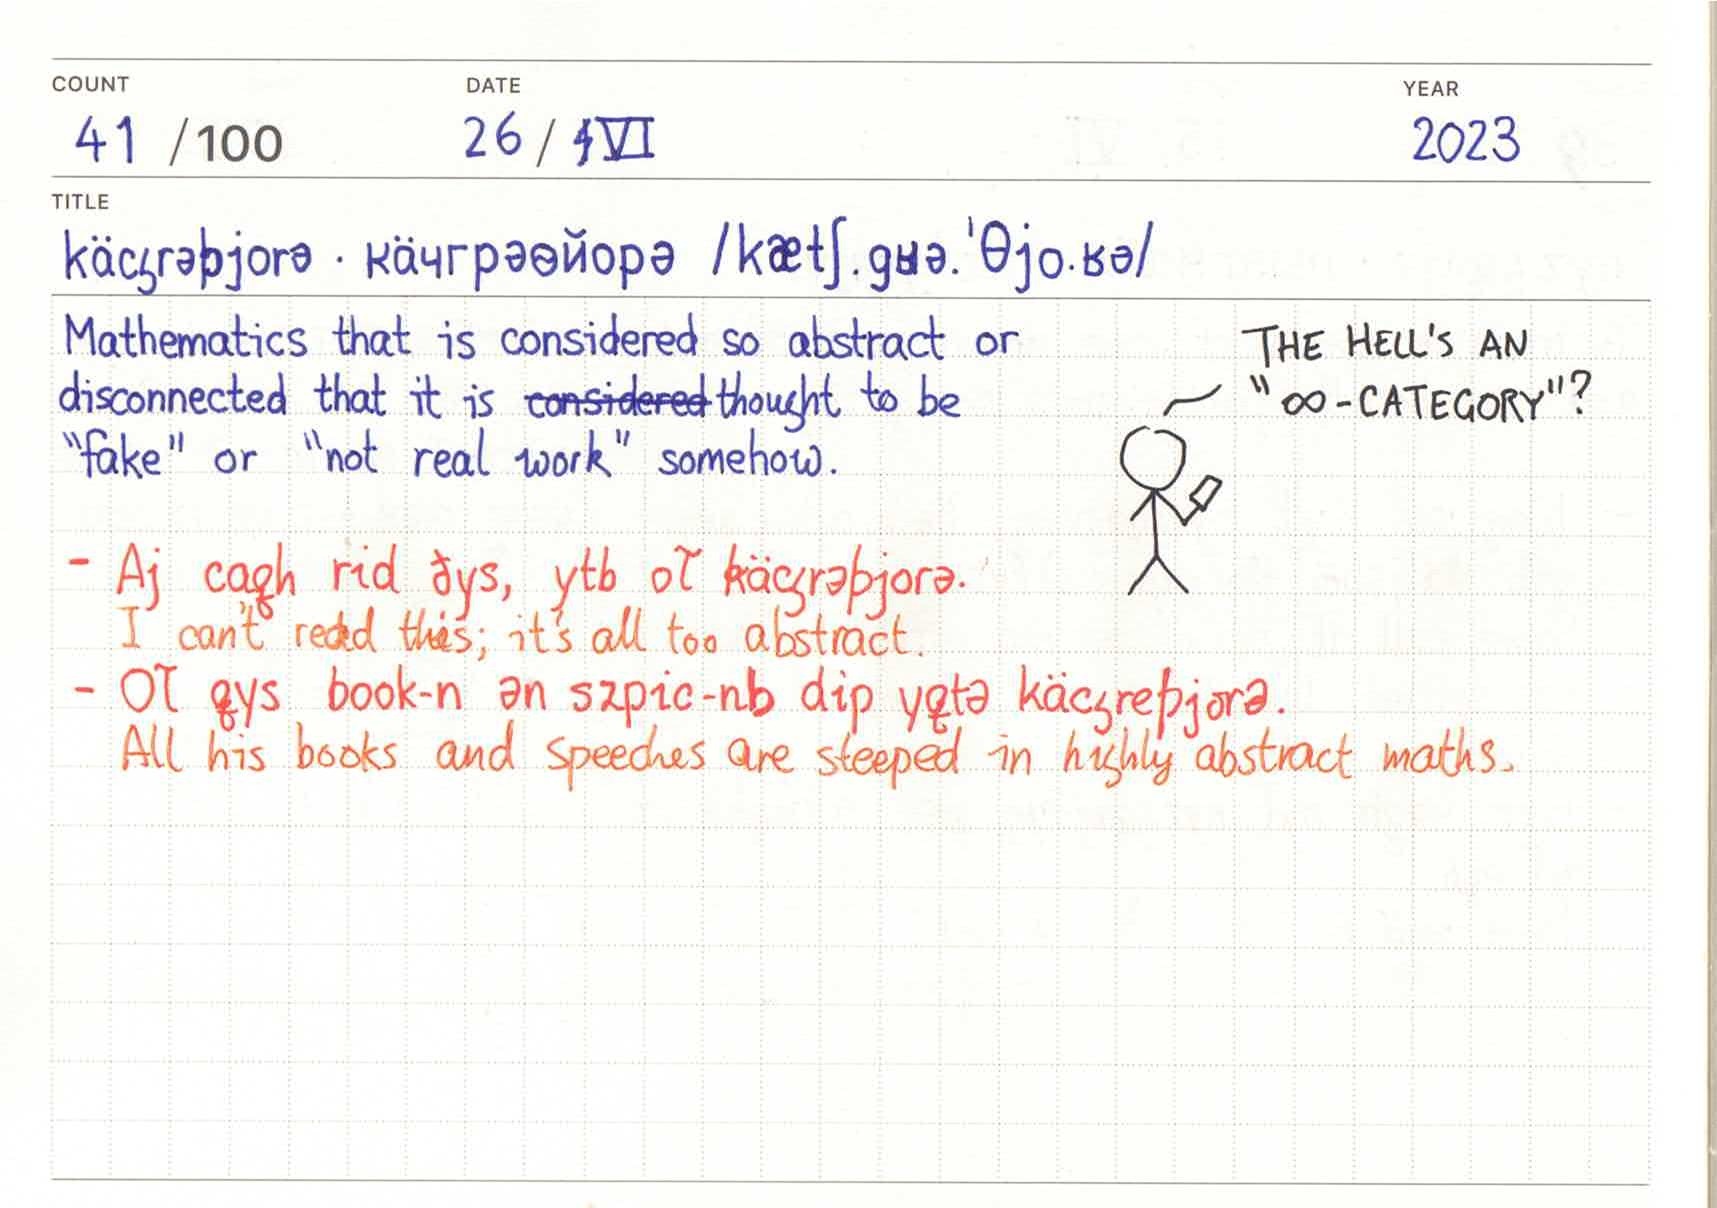 COUNT DATE YEAR
41 /100 26 / VI 2023
TITLE
käcȝrəþjorə · кäчгрəѳйорə /kætʃ.gʁə.ˈθjo.ʁə/
Mathematics that is considered so abstract or
disconnected that it is considered thought to be
"fake" or "not real work" somehow.
THE HELL'S AN
"∞-CATEGORY"?
- Aj caqh rid ðys, ytb käcȝrəþjorə.
I can't read this; it's all too abstract.
- book-n ən szpic-nb dip käcȝreþjorə.
All his books and speeches are steeped in highly abstract maths.